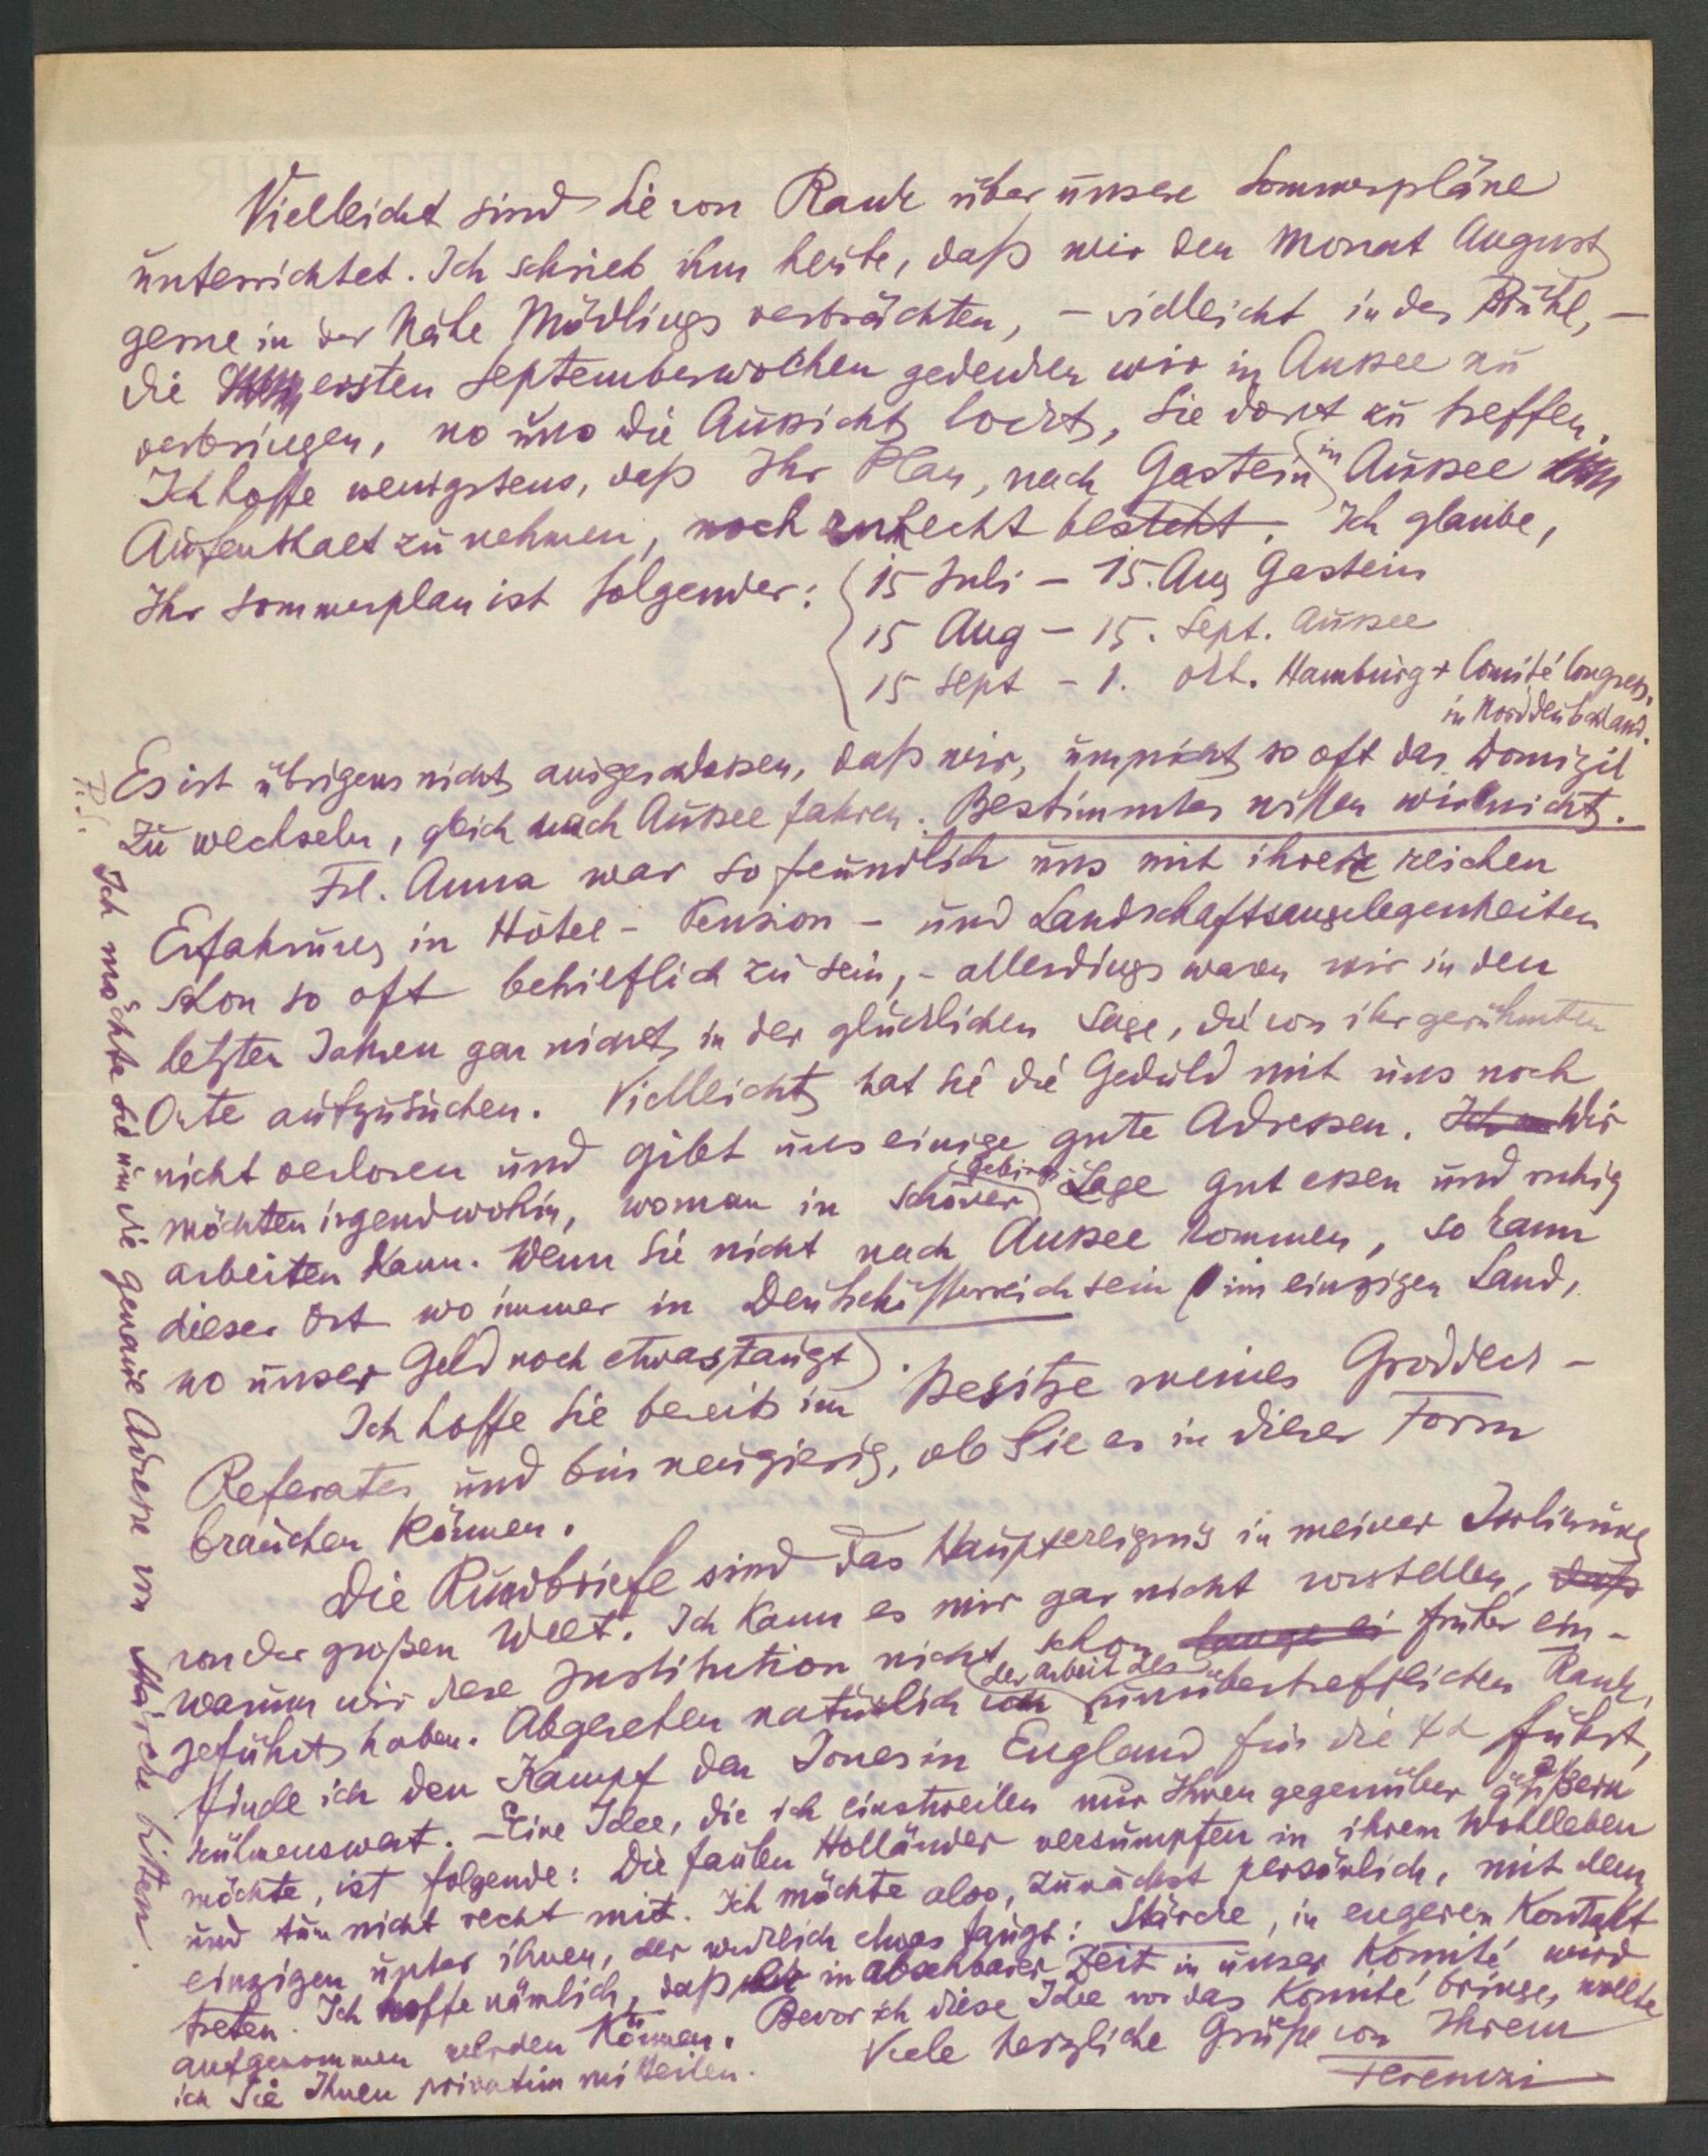 Vielleicht sind Sie von Rank über unsere Sommerpläne
unterrichtet. Ich schrieb ihm heute, daß wir den Monat August
gerne in der Nähe Mödlings verbrächten, – vielleicht in der Brühl, –
die ersten Septemberwochen gedenken wir in Aussee zu
verbringen, wo uns die Aussicht lockt, Sie dort zu treffen.
Ich hoffe wenigstens, daß Ihr Plan, nach Gastein in Aussee
Aufenthalt zu nehmen, noch zurecht besteht. Ich glaube,
Ihr Sommerplan ist folgender: 15 Juli – 15. Aug Gastein
15 Aug – 15. Sept. Aussee
15 Sept – 1. Okt. Hamburg + Comité Congress,
in Norddeutschland.
Es ist übrigens nicht ausgeschlossen, daß wir, um nicht so oft das Domizil
zu wechseln, gleich nach Aussee fahren. Bestimmtes wissen wir nicht.
Frl. Anna war so freundlich uns mit ihrer reichen
Erfahrung in Hôtel- Pension- und Landschaftsangelegenheiten
schon so oft behilflich zu sein, – allerdings waren wir in den
letzten Jahren gar nicht in der glücklichen Lage, die von ihr gerühmten
Orte aufzusuchen. Vielleicht hat sie die Geduld mit uns noch
nicht verloren und gibt uns einige gute Adressen. Wir
möchten irgendwohin, wo man in schöner Gebirgs- Lage gut essen und ruhig
arbeiten kann. Wenn Sie nicht nach Aussee kommen, so kann
dieser Ort wo immer in Deutschösterreich sein (im einzigen Land,
wo unser Geld noch etwas taugt).
Ich hoffe Sie bereits im Besitze meines Groddeck-
Referates und bin neugierig, ob Sie es in dieser Form
brauchen können.
Die Rundbriefe sind das Hauptereignis in meiner Isolierung
von der großen Welt. Ich kann es mir gar nicht vorstellen,
warum wir diese Institution nicht schon früher ein-
geführt haben. Abgesehen natürlich von der Arbeit des unübertrefflichen Rank,
finde ich den Kampf den Jones in England für die ΨΑ führt,
rühmenswert. – Eine Idee, die ich einstweilen nur Ihnen gegenüber äußern
möchte, ist folgende: Die faulen Holländer versumpfen in ihrem Wohlleben
und tun nicht recht mit. Ich möchte also, zunächst persönlich, mit dem
einzigen unter ihnen, der wirklich etwas taugt: Stärcke, in engeren Kontakt
treten. Ich hoffe nämlich, daß er in absehbarer Zeit in unser Komité wird
aufgenommen werden können. Bevor ich diese Idee vor das Komité bringe, wollte
ich Sie Ihnen privatim mitteilen. Viele herzliche Grüße von Ihrem
Ferenczi
P.S. Ich möchte Sie um die genaue Adresse von Stärcke bitten.